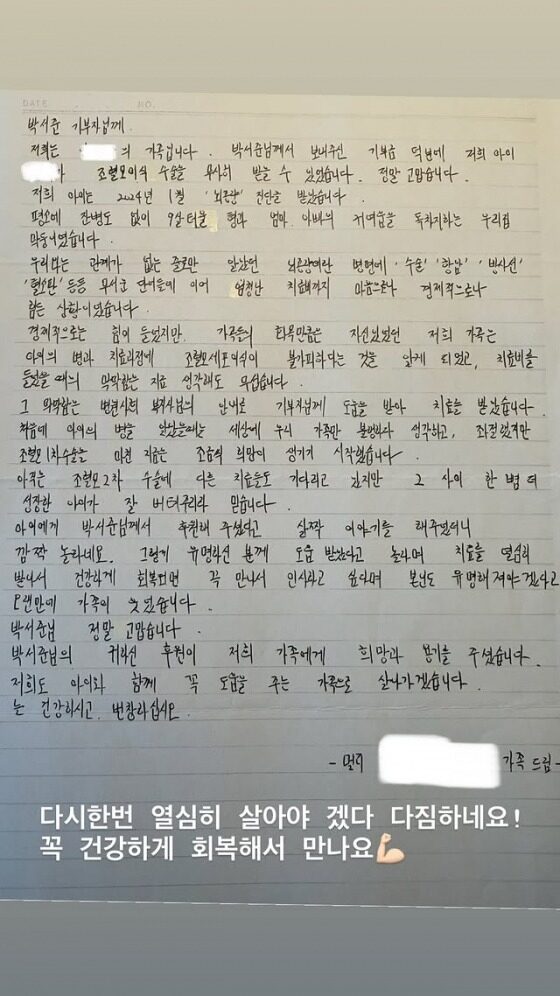 DATE . . NO.
박서준 기부자님께.
저희는 의 가족입니다. 박서준님께서 보내주신 기부금 덕분에 저희 아이
가 조혈모이식 수술을 무사히 받을 수 있었습니다. 정말 고맙습니다.
저희 아이는 2024년 1월 '뇌종양' 진단을 받았습니다
평소에 잔병도 없이 9살 터울 형과 엄마, 아빠의 귀여움을 독차지하는 우리집
막둥이였습니다.
우리와는 관계가 없는 줄로만 알았던 뇌종양이란 병명에 '수술' '항암' '방사선'
'혈소판' 등등 무서운 단어들에 이어 엄청난 치료비까지 마음으로나 경제적으로나
는 상황이었습니다.
경제적으로는 힘이 들었지만, 가족들의 화목만큼은 자신있었던 저희 가족은
아이의 병과 치료과정에 조혈모세포이식이 불가피하다는 것을 알게 되었고, 치료비를
들었을 때의 막막함은 지금 생각해도 무섭습니다.
그 막막함는 병원사회 복지사님의 안내로 기부자님께 도움을 받아 치료를 받았습니다.
처음에 아이의 병을 알았을때는 세상에 우리 가족만 불행하다 생각하고, 좌절했지만
조혈모 1차수술을 마친 지금은 조금의 희망이 생기기 시작했습니다.
아직은 조혈모 2차 수술에 다른 치료들도 기다리고 있지만 그 사이 한 뼘 더
성장한 아이가 잘 버텨주리라 믿습니다.
아이에게 박서준님께서 후원해 주셨다고 살짝 이야기를 해주었더니
깜짝 놀라네요. 그렇게 유명하신 분께 도움 받았다고 놀라며 치료를 열심히
받아서 건강하게 회복되면 꼭 만나서 인사하고 싶다며 본인도 유명해져야겠다고
오랜만에 가족이 웃었습니다.
박서준님 정말 고맙습니다.
박서준님의 귀하신 후원이 저희 가족에게 희망과 용기를 주셨습니다.
저희도 아이와 함께 꼭 도움을 주는 가족으로 살아가겠습니다.
는 건강하시고, 번창하십시오.
- 멀리 가족 드림 -
다시한번 열심히 살아야 겠다 다짐하네요!
꼭 건강하게 회복해서 만나요💪🏻